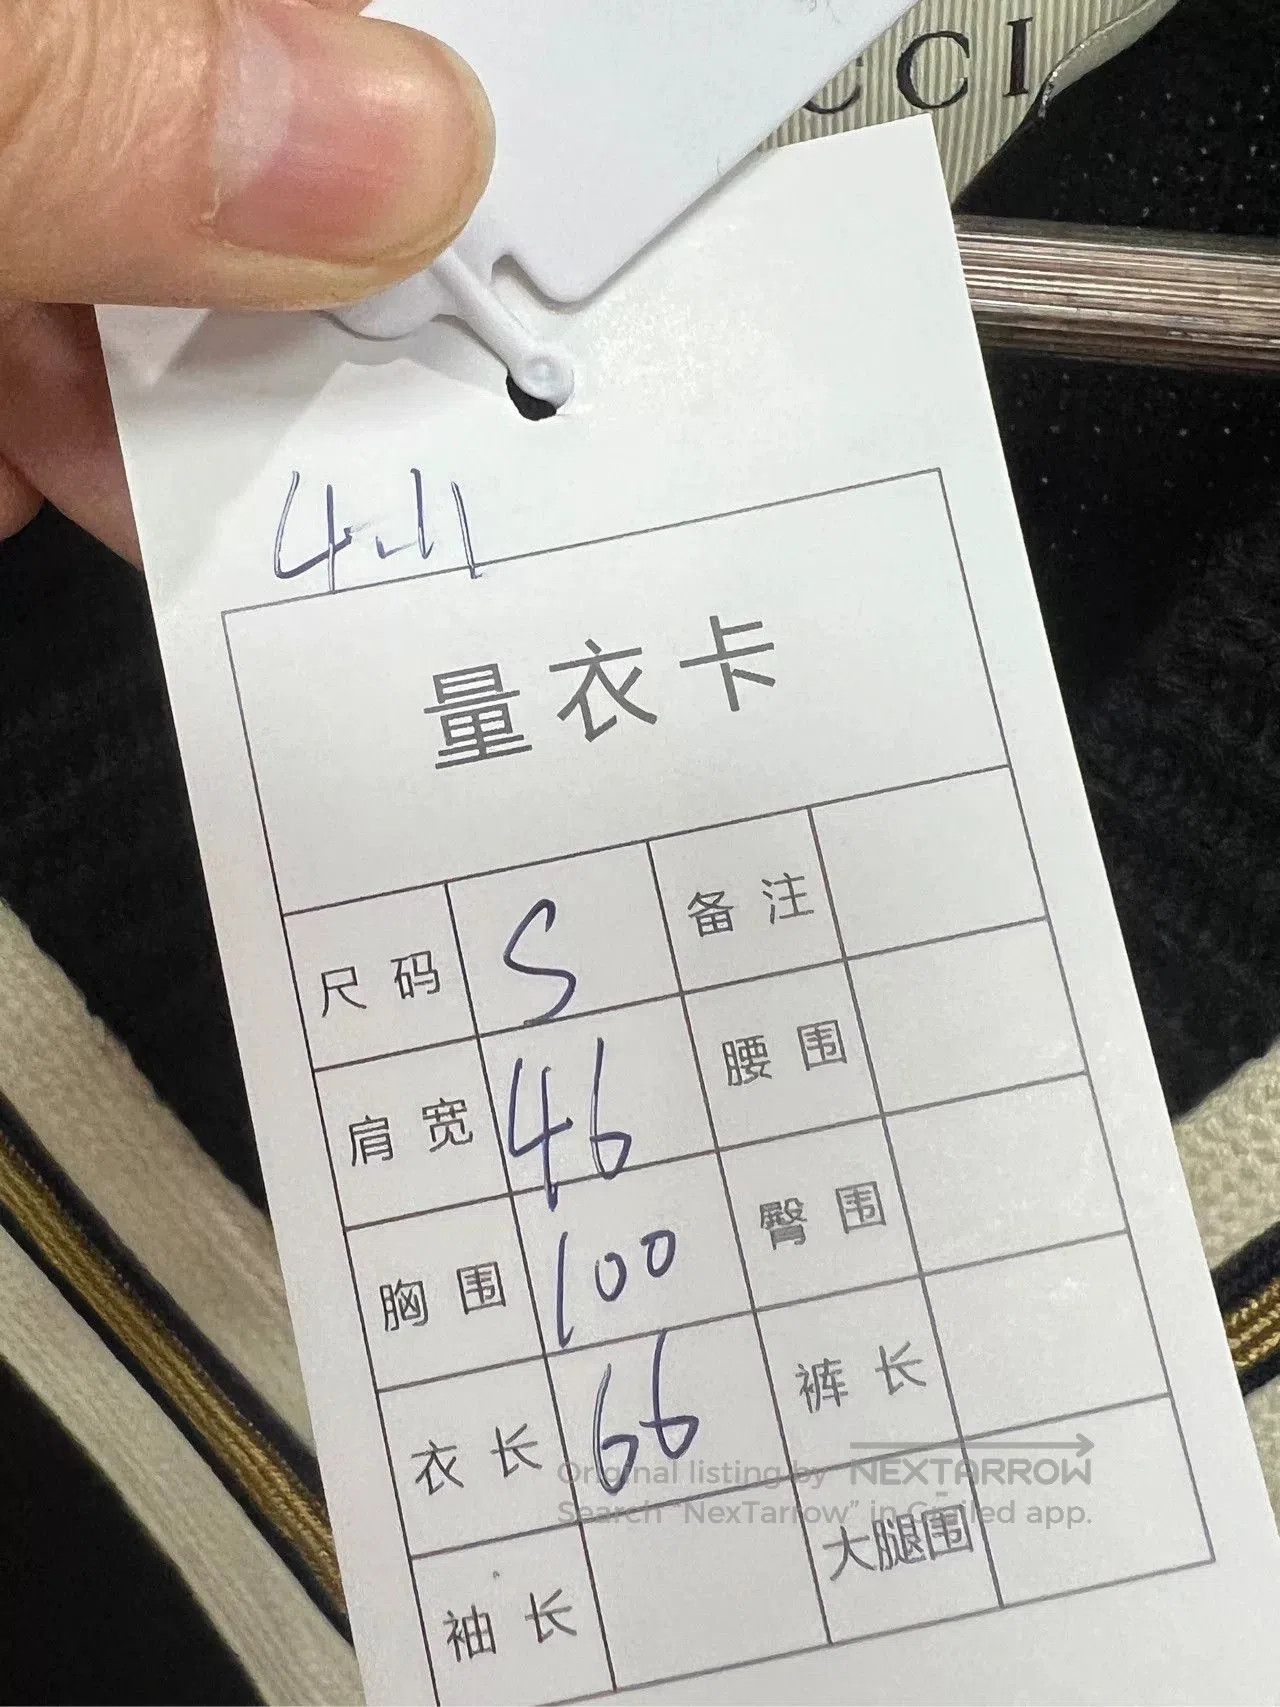 CCI
4.11
量衣卡
尺码 S 备注
肩宽 46 腰围
胸围 100 臀围
衣长 66 裤长
袖长 大腿围
Original listing by NEXTARROW
Search "NexTarrow" in Grailed app.